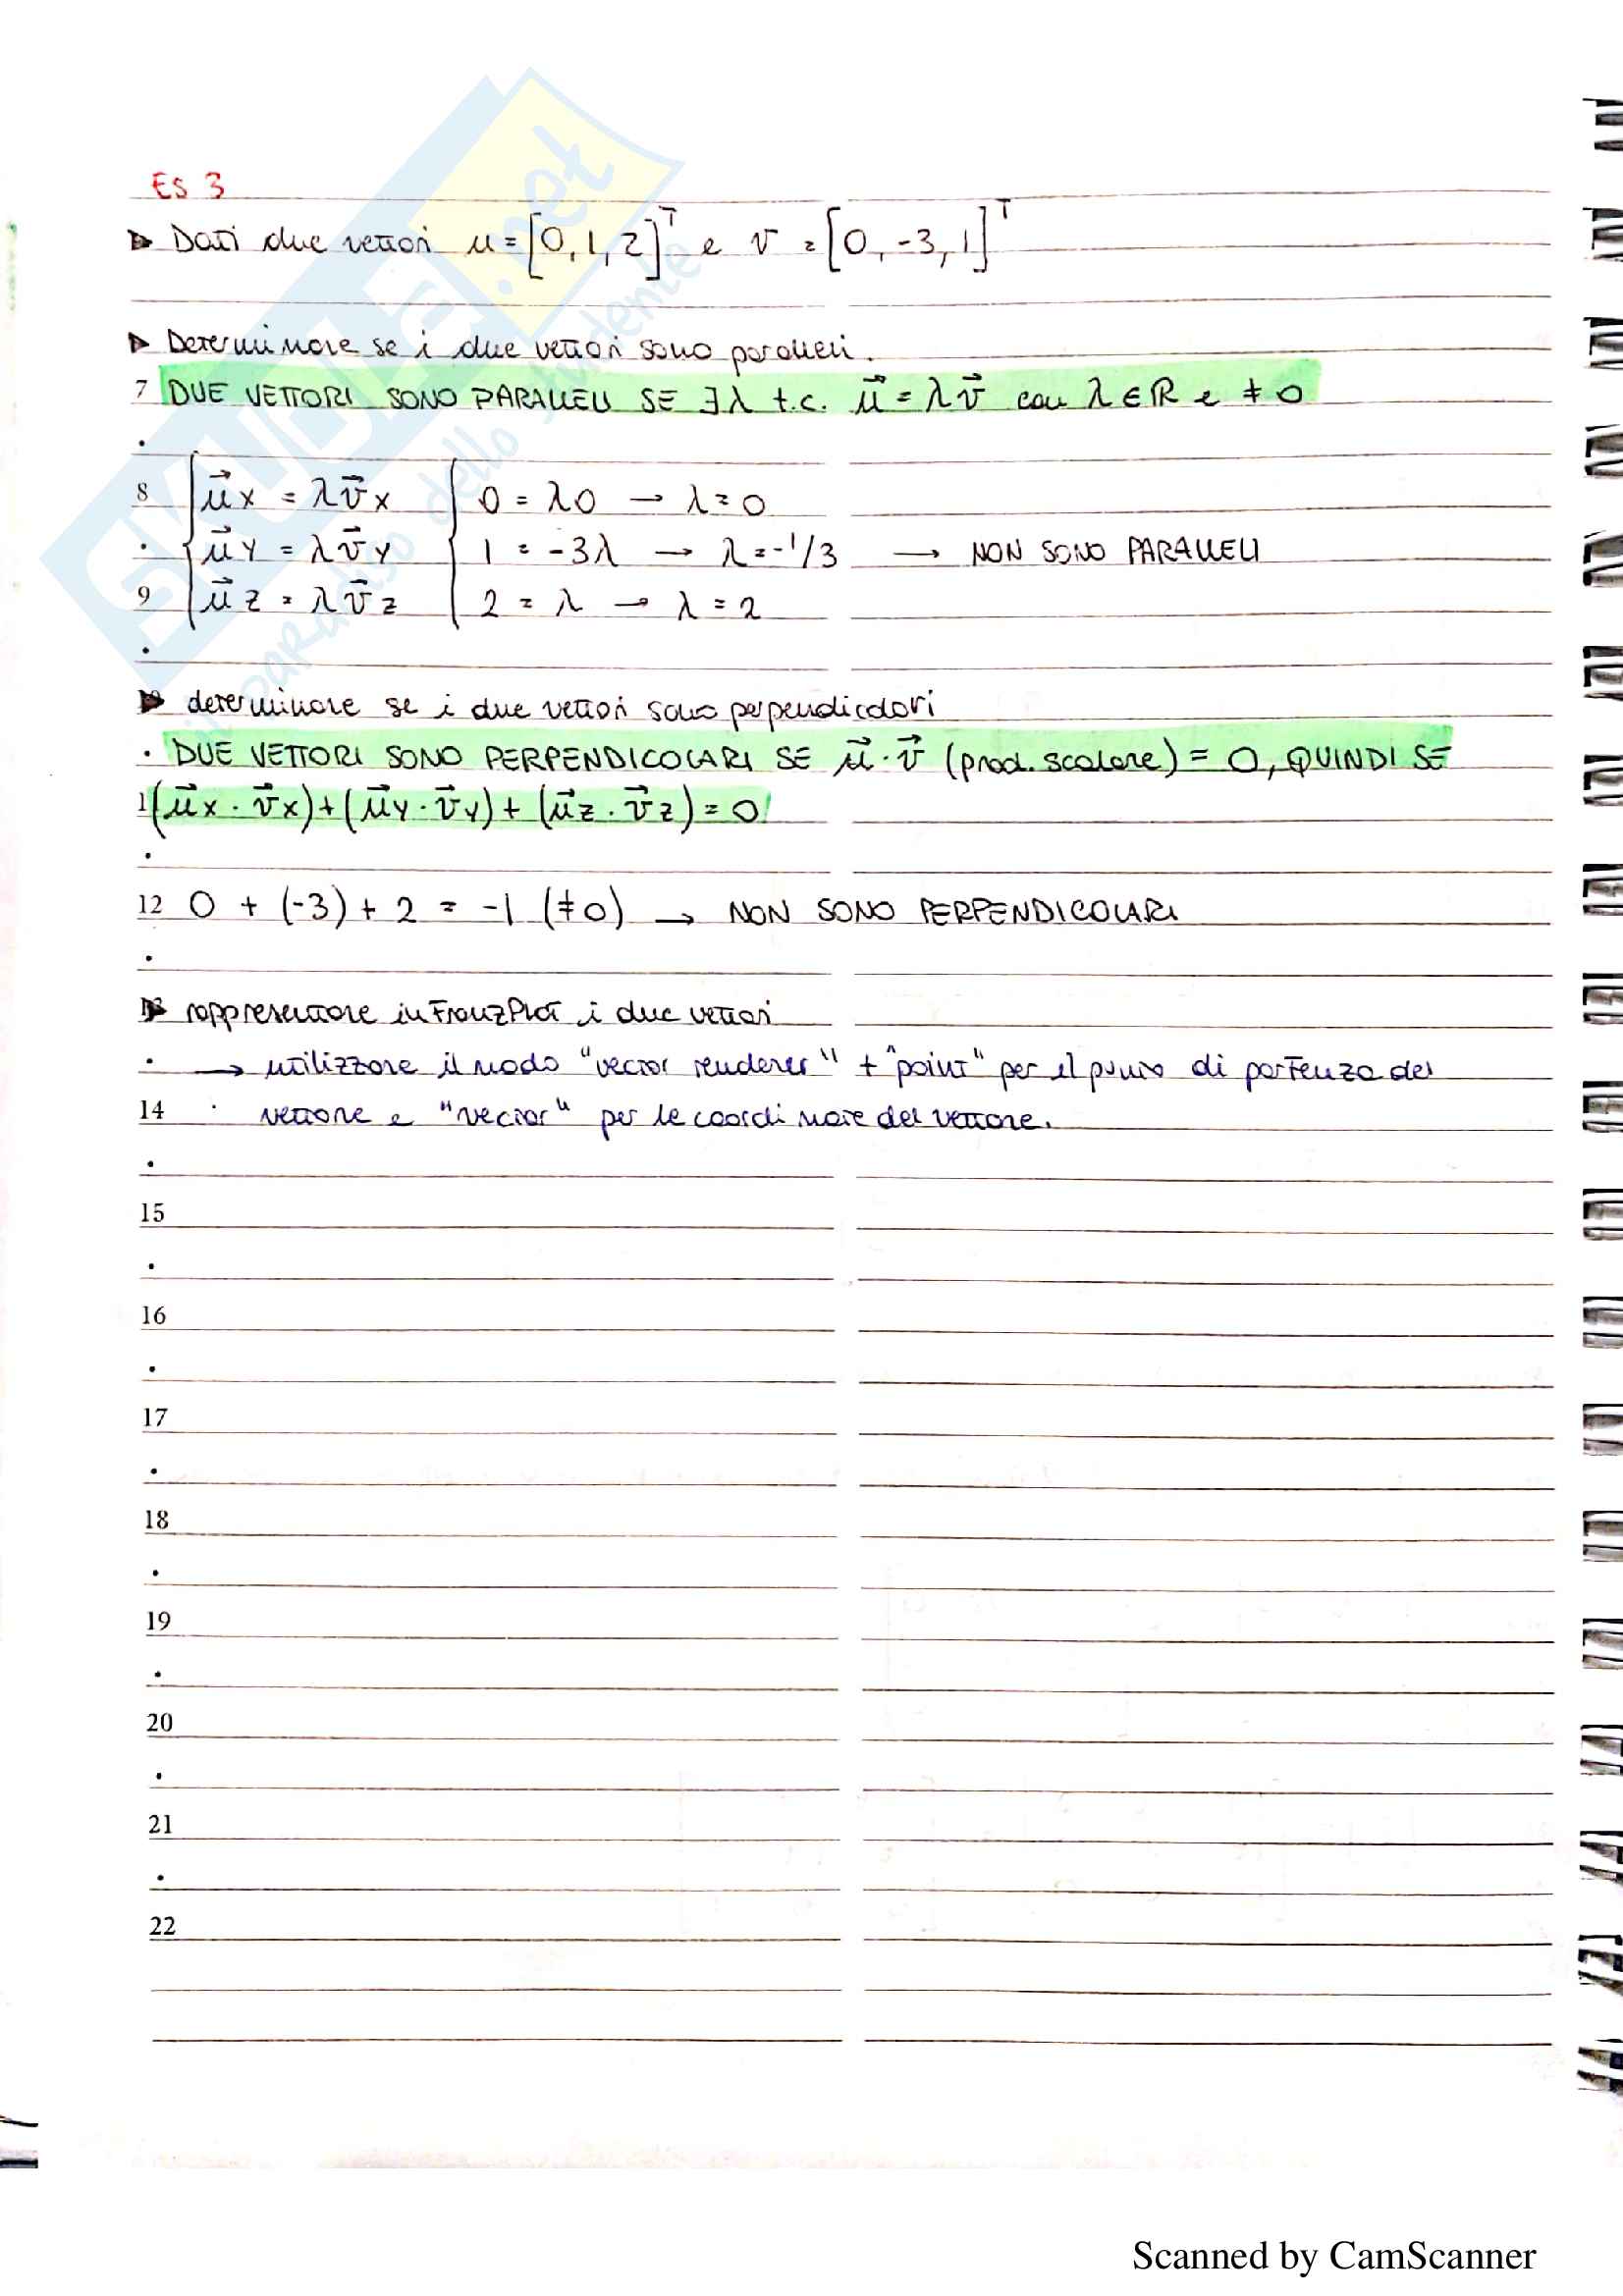 ES 3
Dati due vettori u = [0, 1, 2]ᵀ e v = [0, -3, 1]ᵀ
Determinare se i due vettori sono paralleli.
7 DUE VETTORI SONO PARALLELI SE ∃ λ t.c. u⃗ = λv⃗ con λ ∈ ℝ e ≠ 0
8 u⃗x = λv⃗x 0 = λ0 → λ = 0
u⃗y = λv⃗y 1 = -3λ → λ = -1/3 → NON SONO PARALLELI
9 u⃗z = λv⃗z 2 = λ → λ = 2
determinare se i due vettori sono perpendicolari
DUE VETTORI SONO PERPENDICOLARI SE u⃗ · v⃗ (prod. scalare) = 0, QUINDI SE
1 (u⃗x · v⃗x) + (u⃗y · v⃗y) + (u⃗z · v⃗z) = 0
12 0 + (-3) + 2 = -1 (≠0) → NON SONO PERPENDICOLARI
rappresentare in FranzPlot i due vettori
→ utilizzare il nodo "vector renderer" + "point" per il punto di partenza del
14 vettore e "vector" per le coordinate del vettore.
15
16
17
18
19
20
21
22
SKUOLA.net
il paradiso dello studente
Scanned by CamScanner